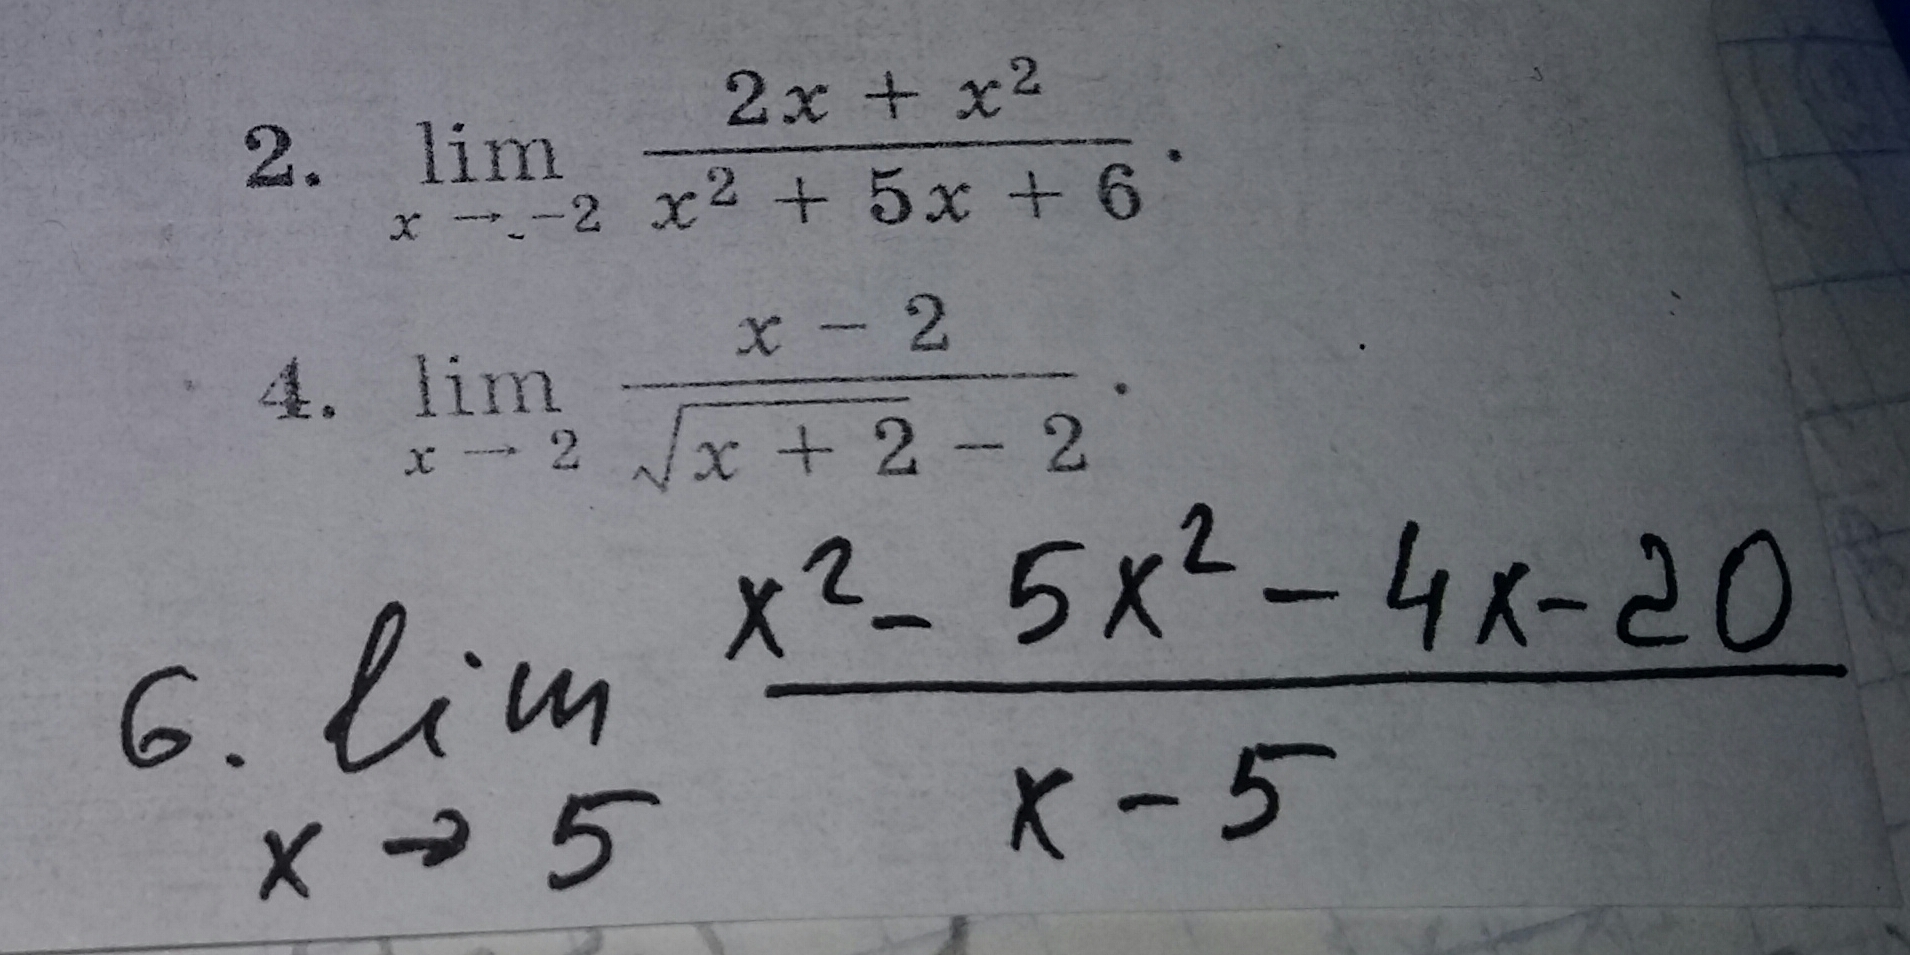 2. lim x → -2 (2x + x²) / (x² + 5x + 6).
4. lim x → 2 (x - 2) / (√(x + 2) - 2).
6. lim x → 5 (x² - 5x² - 4x - 20) / (x - 5)